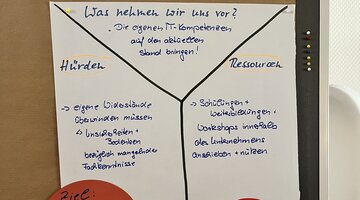 Was nehmen wir uns vor?
Die eigenen IT-Kompetenzen
auf den aktuellen
Stand bringen!
Hürden
→ eigene Widerstände
überwinden müssen
↳ Unsicherheiten +
Bedenken
bezüglich mangelnder
Fachkenntnisse
Ressourcen
→ Schulungen +
Weiterbildungen +
Workshops innerhalb
des Unternehmens
anschieben + nutzen
Ziel: